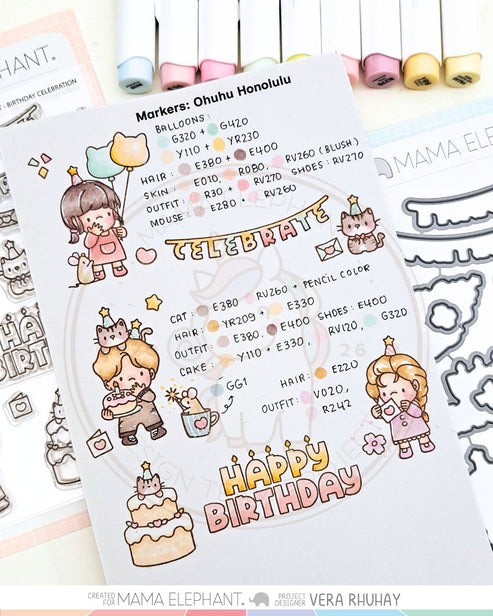 EPHANT.
- BIRTHDAY CELEBRATION
Markers: Ohuhu Honolulu
BALLOONS:
G320 + G420
Y110 + YR230
HAIR: E380 + E400
SKIN: E010, R080, RV260 (BLUSH)
OUTFIT: R30 + RV270 SHOES: RV270
MOUSE: E280 + RV260
CELEBRATE
MAMA ELEPH
CAT: E380 RV260 + PENCIL COLOR
HAIR: YR209 + E330
OUTFIT: E380 E400 SHOES: E400
CAKE: Y110 + E330, RV120, G320
GG1
HAIR: E220
OUTFIT: V020,
R242
26
HAPPY
BIRTHDAY
HA
BIRT
CREATED FOR MAMA ELEPHANT. PROJECT DESIGNER VERA RHUHAY